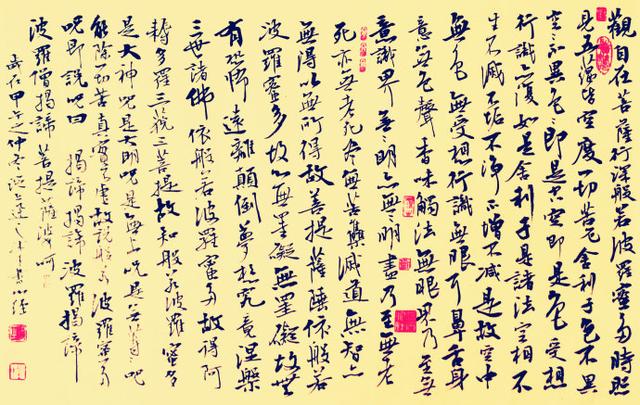 觀自在菩薩行深般若波羅蜜多時照
見五蘊皆空度一切苦厄舍利子色不異
空空不異色色即是空空即是色受想
行識亦復如是舍利子是諸法空相不
生不滅不垢不淨不增不減是故空中
無色無受想行識無眼耳鼻舌身
意無色聲香味觸法無眼界乃至無
意識界無無明亦無無明盡乃至無老
死亦無老死盡無苦集滅道無智亦
無得以無所得故菩提薩埵依般若
波羅蜜多故心無罣礙無罣礙故無
有恐怖遠離顛倒夢想究竟涅槃
三世諸佛依般若波羅蜜多故得阿
耨多羅三藐三菩提故知般若波羅蜜多
是大神呪是大明呪是無上呪是無等等呪
能除一切苦真實不虛故說般若波羅蜜多
呪即說呪曰 揭諦揭諦波羅揭諦
波羅僧揭諦菩提薩婆呵
歲在甲午之仲 書心經